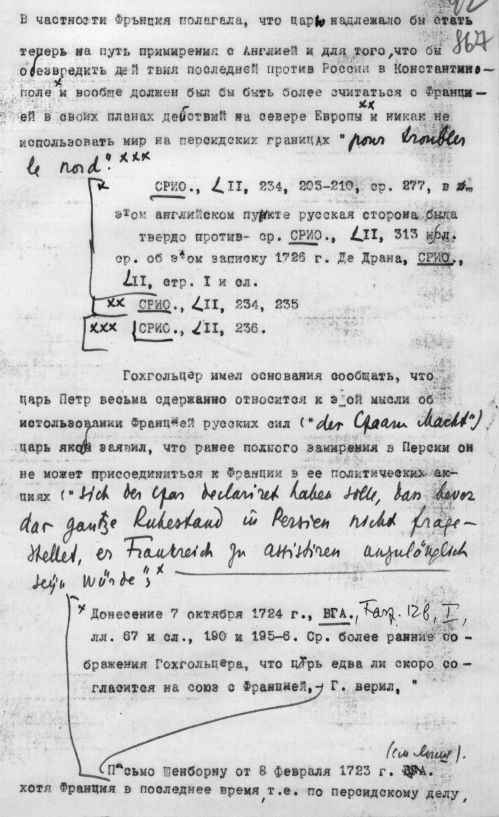 92
867
В частности Франция полагала, что царю надлежало бы стать
теперь на путь примирения с Англией и для того, что бы
обезвредить дей твия последней против России в Константино-
поле ˣ и вообще должен был бы быть более считаться с Франци-
ей в своих планах действий на севере Европы ˣˣ и никак не
использовать мир на персидских границах "pour troubler
le nord". ˣˣˣ
x СРИО., LII, 234, 205-210, ср. 277, в
этом английском пункте русская сторона была
твердо против- ср. СРИО., LII, 313
ср. об этом записку 1726 г. Де Драна, СРИО.,
LII, стр. I и сл.
xx СРИО., LII, 234, 235
xxx СРИО., LII, 236.
Гохгольцер имел основания сообщать, что
царь Петр весьма сдержанно относится к э ой мысли об
использовании Францией русских сил ("der Czaarn Macht")
царь якобы заявил, что ранее полного замирения в Персии он
не может присоединиться к Франции в ее политических ак-
циях ("sich der Czar declariret haben solle, das bevor
dar gantze Ruhestand in Persien nicht
stellet, er Frankreich zu assistiren
seyn würde". ˣ
x Донесение 7 октября 1724 г., ВГА., Fasz. 12b, I,
лл. 67 и сл., 190 и 195-6. Ср. более ранние со -
бражения Гохгольцера, что царь едва ли скоро со -
гласится на союз с Францией, Г. верил, "
(см. ).
Письмо Шенборну от 8 февраля 1723 г. ВГА.
хотя Франция в последнее время, т.е. по персидскому делу,